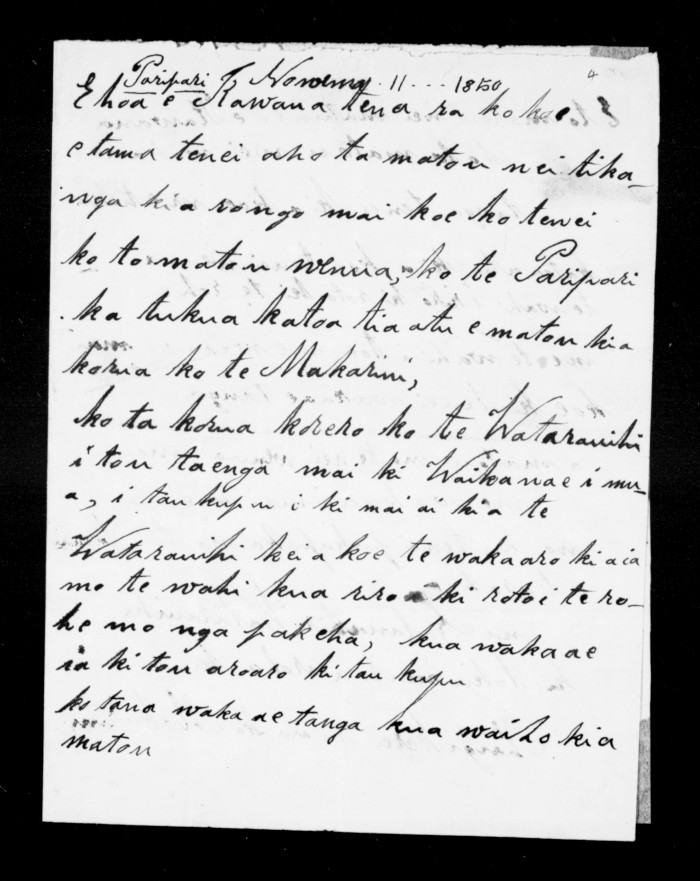 Paripari Novema. 11 . . . 1850
4
E hoa e Kawana tena ra ko koe
e tama tenei ano ta matou nei tika-
nga kia rongo mai koe ko tenei
ko to matou wenua, ko te Paripari
ka tukua katoa tia atu e matou kia
korua ko te Makarini,
ko ta korua korero ko te Watarauihi
i tou taenga mai ki Waikanae i mu-
a, i tau kupu i ki mai ai kia te
Watarauihi keia koe te wakaaro kiaia
mo te wahi kua riro ki roto i te ro-
he mo nga pakeha, kua wakaae
ia ki tou aroaro ki tau kupu
ko tana wakaaetanga kua waiho kia
matou